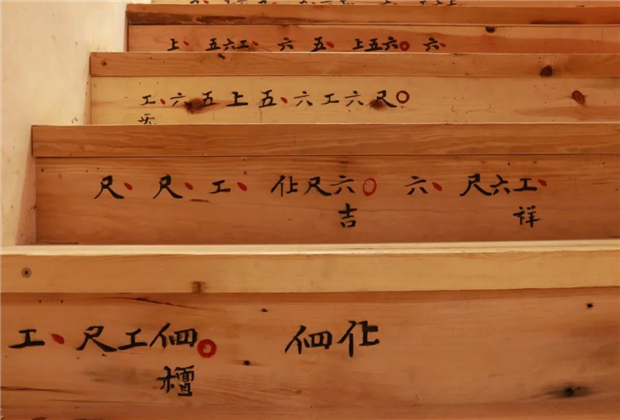 上、五六工、六 五、上五六○ 六、
工、六、五上五、六工六尺○
尺、尺、工、仩尺六○ 六、尺六工、
吉 祥
工、尺工伵○ 伵仩
檀